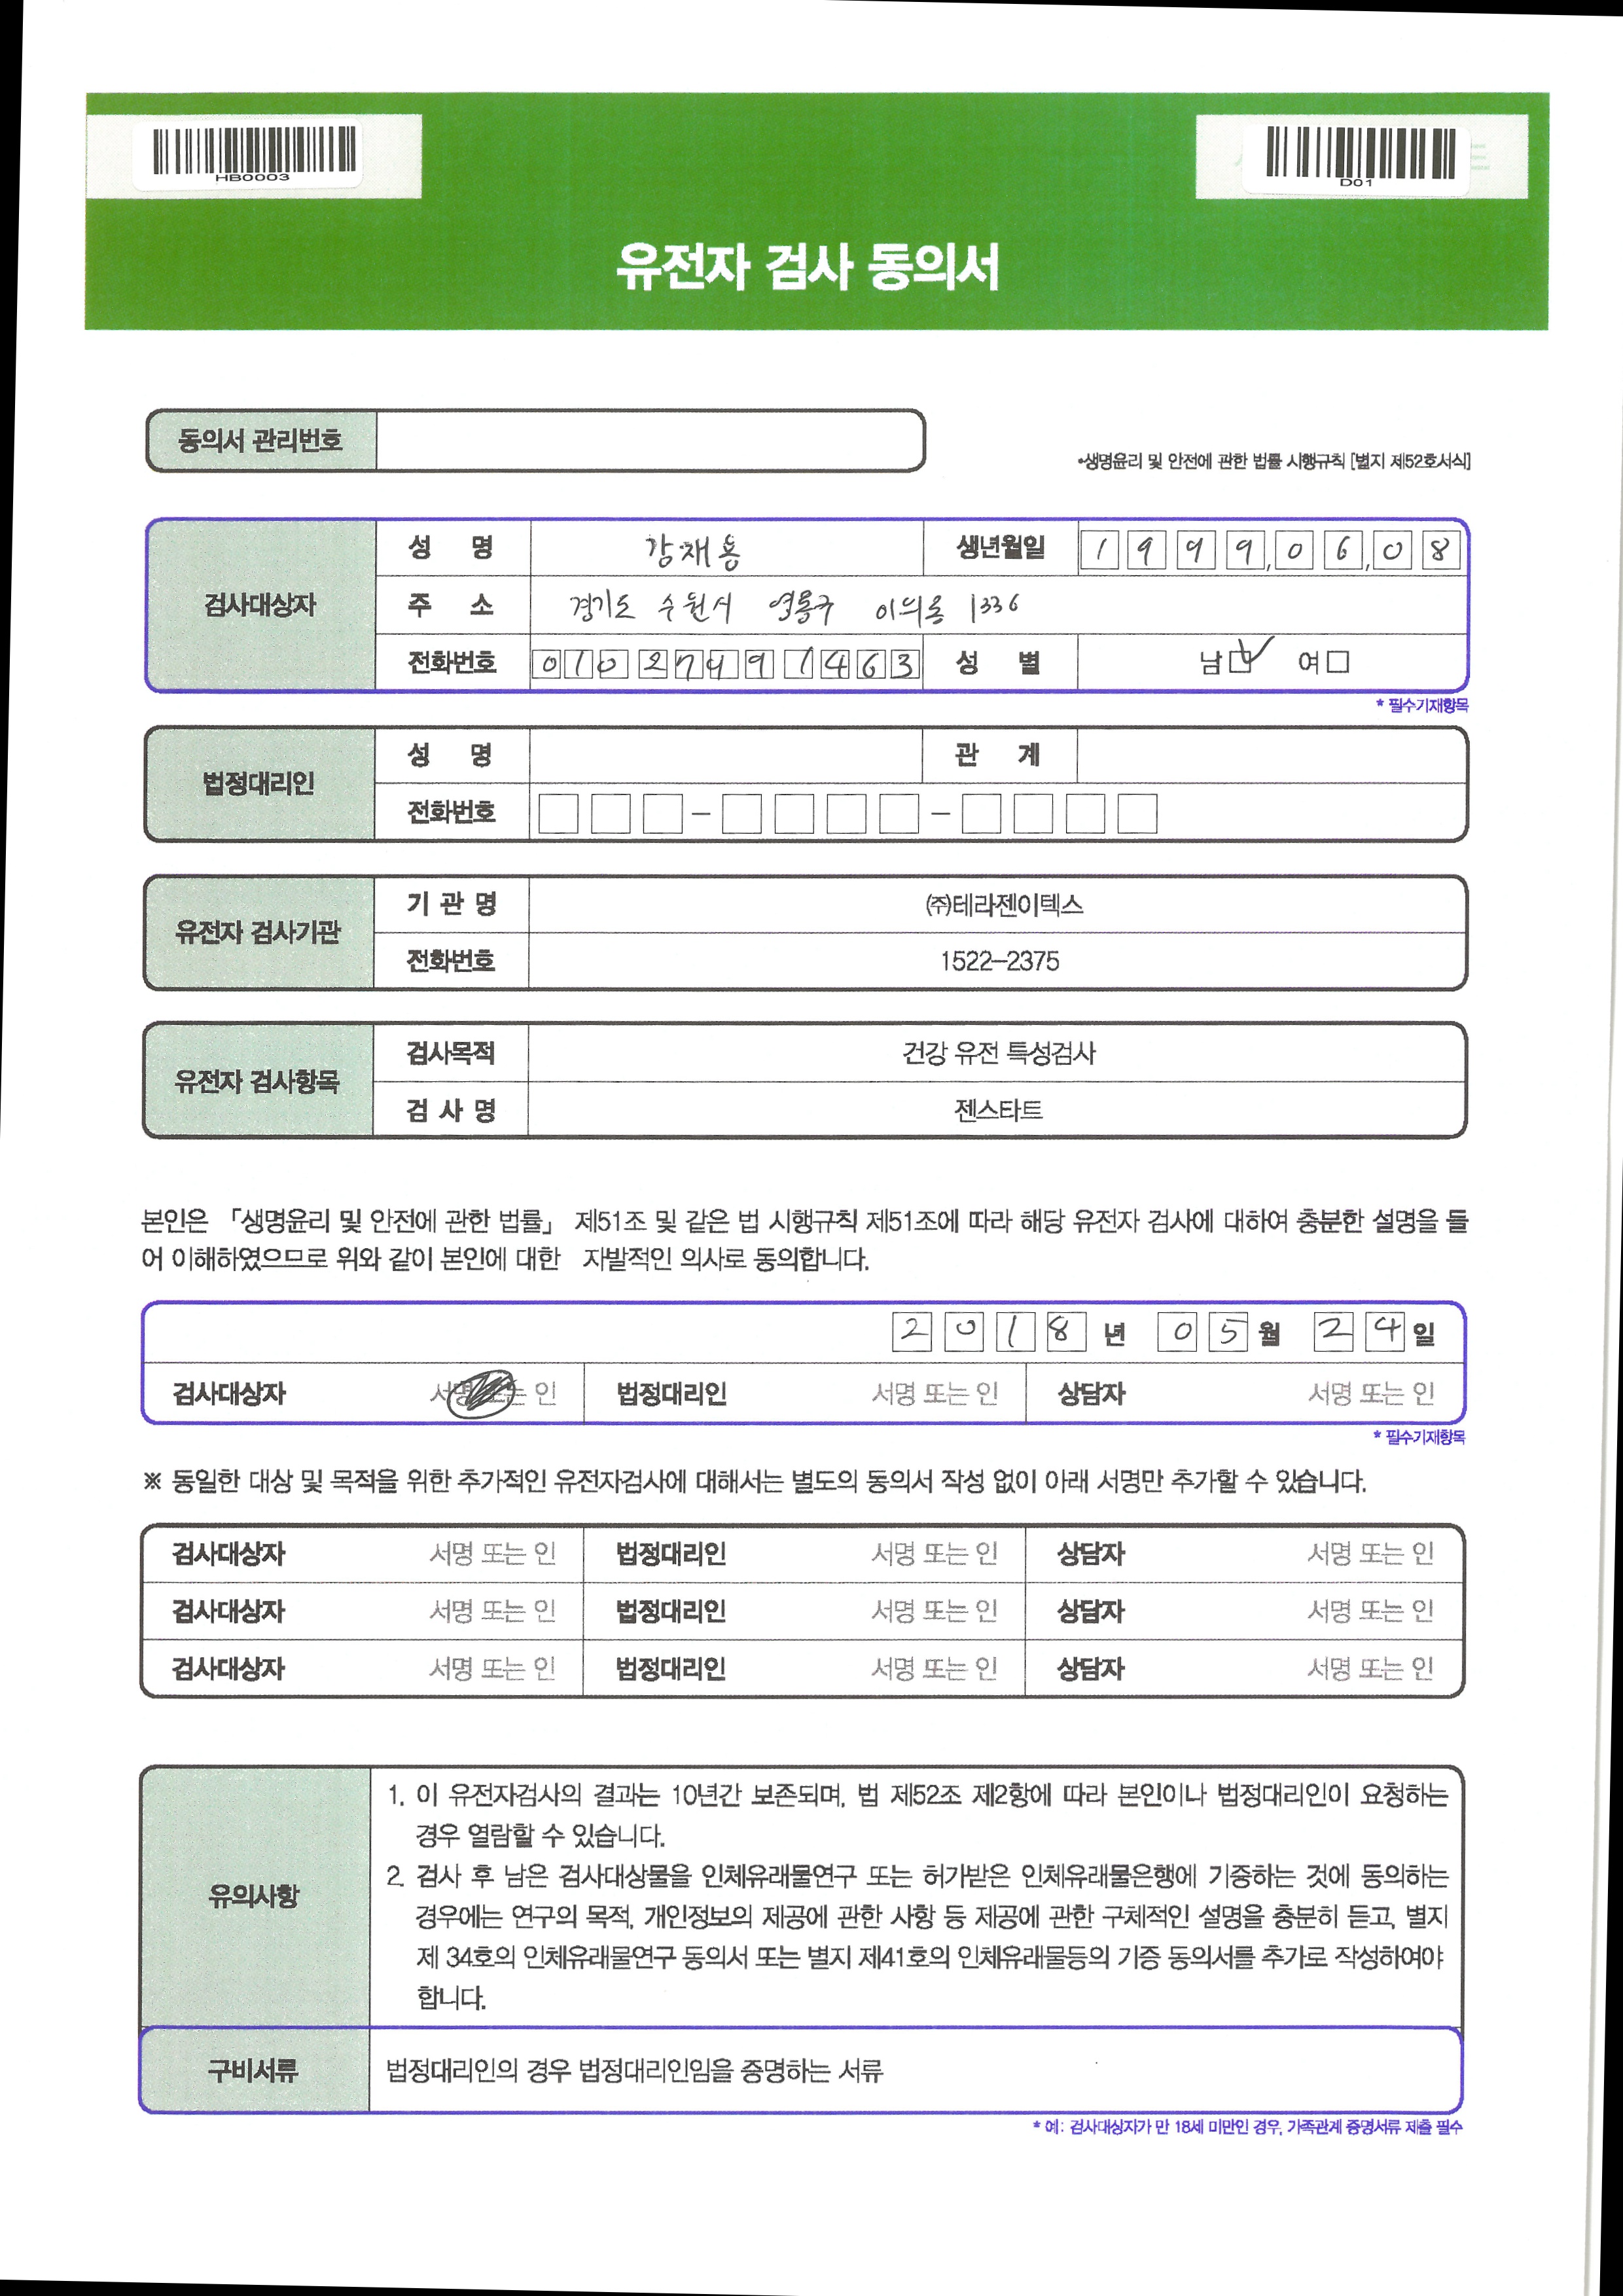 HB0003
D01
유전자 검사 동의서
동의서 관리번호
•생명윤리 및 안전에 관한 법률 시행규칙 [별지 제52호서식]
검사대상자
성 명 강채용 생년월일 1999.06.08
주 소 경기도 수원시 영통구 이의동 1336
전화번호 010 2749 1463 성 별 남☑ 여☐
* 필수기재항목
법정대리인
성 명 관 계
전화번호 ☐☐☐-☐☐☐☐-☐☐☐☐
유전자 검사기관
기 관 명 ㈜테라젠이텍스
전화번호 1522-2375
유전자 검사항목
검사목적 건강 유전 특성검사
검 사 명 젠스타트
본인은 「생명윤리 및 안전에 관한 법률」 제51조 및 같은 법 시행규칙 제51조에 따라 해당 유전자 검사에 대하여 충분한 설명을 들
어 이해하였으므로 위와 같이 본인에 대한 자발적인 의사로 동의합니다.
2018 년 05 월 24 일
검사대상자 서명 또는 인 법정대리인 서명 또는 인 상담자 서명 또는 인
* 필수기재항목
※ 동일한 대상 및 목적을 위한 추가적인 유전자검사에 대해서는 별도의 동의서 작성 없이 아래 서명만 추가할 수 있습니다.
검사대상자 서명 또는 인 법정대리인 서명 또는 인 상담자 서명 또는 인
검사대상자 서명 또는 인 법정대리인 서명 또는 인 상담자 서명 또는 인
검사대상자 서명 또는 인 법정대리인 서명 또는 인 상담자 서명 또는 인
유의사항
1. 이 유전자검사의 결과는 10년간 보존되며, 법 제52조 제2항에 따라 본인이나 법정대리인이 요청하는
경우 열람할 수 있습니다.
2. 검사 후 남은 검사대상물을 인체유래물연구 또는 허가받은 인체유래물은행에 기증하는 것에 동의하는
경우에는 연구의 목적, 개인정보의 제공에 관한 사항 등 제공에 관한 구체적인 설명을 충분히 듣고, 별지
제 34호의 인체유래물연구 동의서 또는 별지 제41호의 인체유래물등의 기증 동의서를 추가로 작성하여야
합니다.
구비서류 법정대리인의 경우 법정대리인임을 증명하는 서류
* 예: 검사대상자가 만 18세 미만인 경우, 가족관계 증명서류 제출 필수